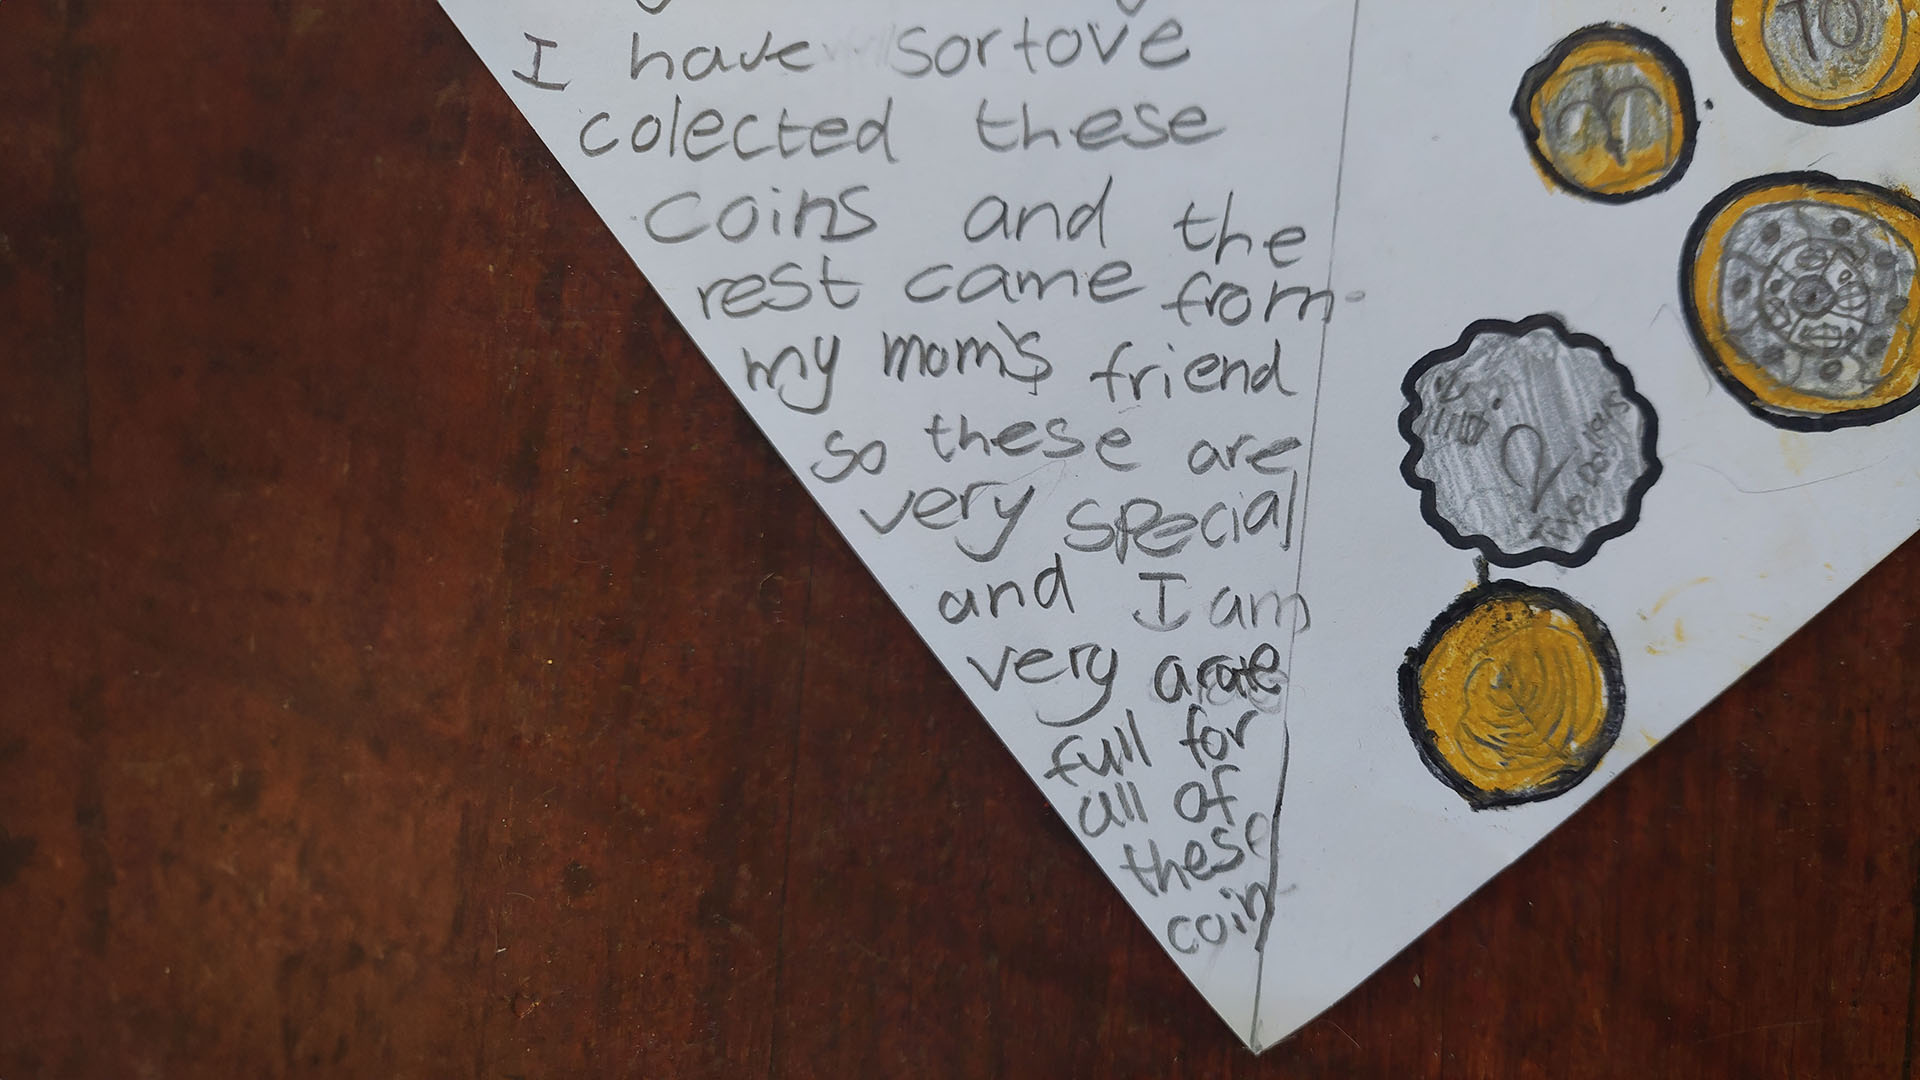 I have sortove
colected these
coins and the
rest came from
my mom's friend
so these are
very special
and I am
very
full for
all of
these
coin
10
2
Two Dollars